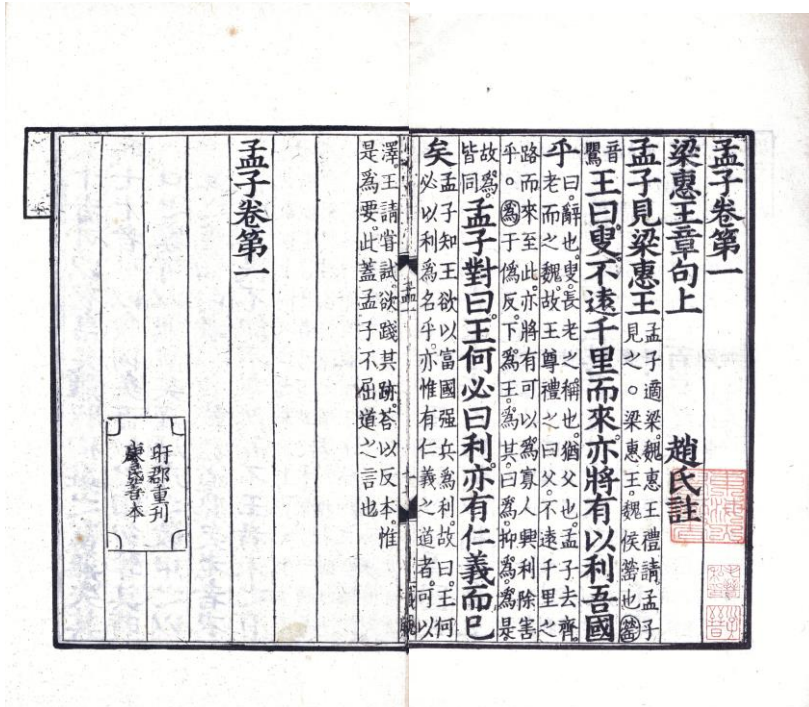 孟子卷第一
梁惠王章句上 趙氏註
孟子見梁惠王 孟子適梁。魏惠王禮請孟子見之○梁惠王。魏侯罃也罃
音甖 王曰。叟。不遠千里而來。亦將有以利吾國
乎 曰。辭也。叟。長老之稱也。猶父也。孟子去齊。老而之魏。故王尊禮之曰父。不遠千里之
路而來至此。亦將有可以爲寡人興利除害乎。○爲于僞反。下爲王。爲其。曰爲。抑爲。爲是。
故爲。皆同 孟子對曰。王何必曰利。亦有仁義而已
矣 孟子知王欲以富國强兵爲利。故曰。王何必以利爲名乎。亦惟有仁義之道者。可以
孟一
澤王請嘗試。欲踐其跡。荅以反本。惟
是爲要。此蓋孟子不屈道之言也
孟子卷第一
盱郡重刊
廖氏善本